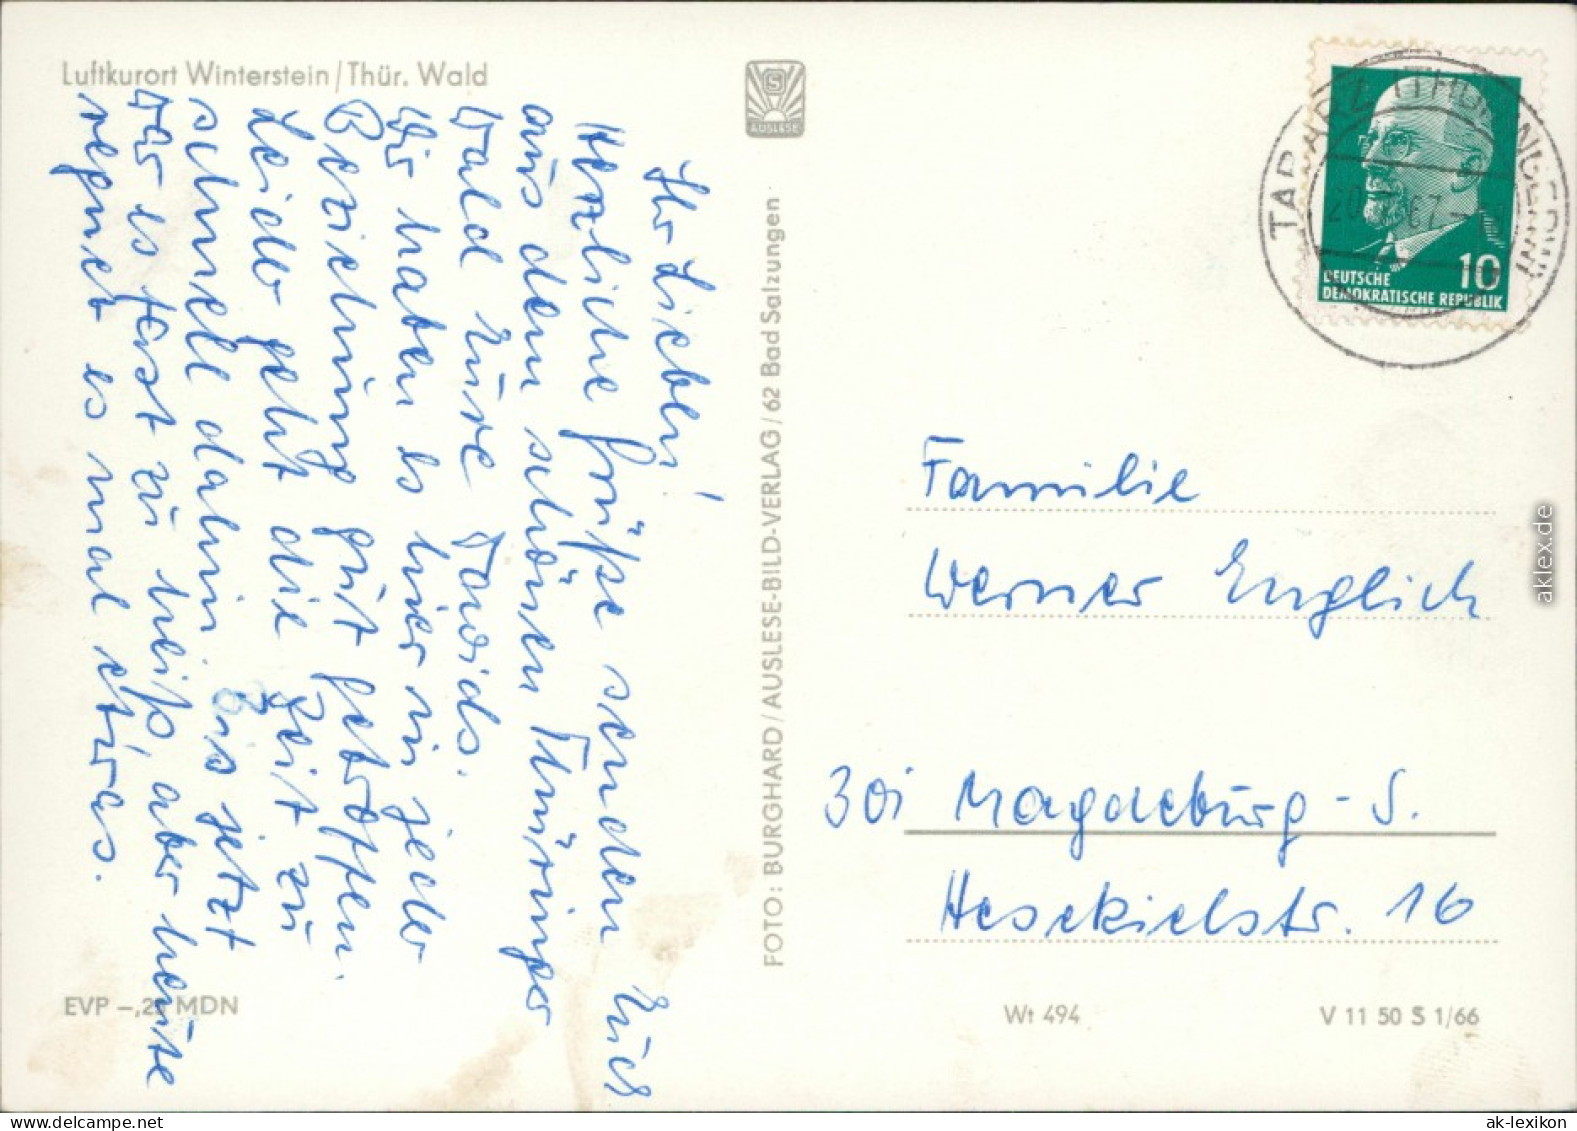 Luftkurort Winterstein/Thür. Wald
AUSLESE
Ihr Lieben!
Herzliche Grüße senden Euch
aus dem schönen Thüringer
Wald Eure Davids.
Wir haben es hier in jeder
Beziehung gut getroffen.
Leider geht die Zeit zu
schnell dahin. Bis jetzt
war es fast zu heiß, aber heute
regnet es mal etwas.
EVP –,2 MDN
FOTO: BURGHARD/AUSLESE-BILD-VERLAG/62 Bad Salzungen
TABARZ (THÜRINGERW)
20. 67
10
DEUTSCHE
DEMOKRATISCHE REPUBLIK
Familie
Werner Englich
301 Magdeburg-S.
Hesekielstr. 16
Wt 494
V 11 50 S 1/66
aklex.de
ak-lexikon